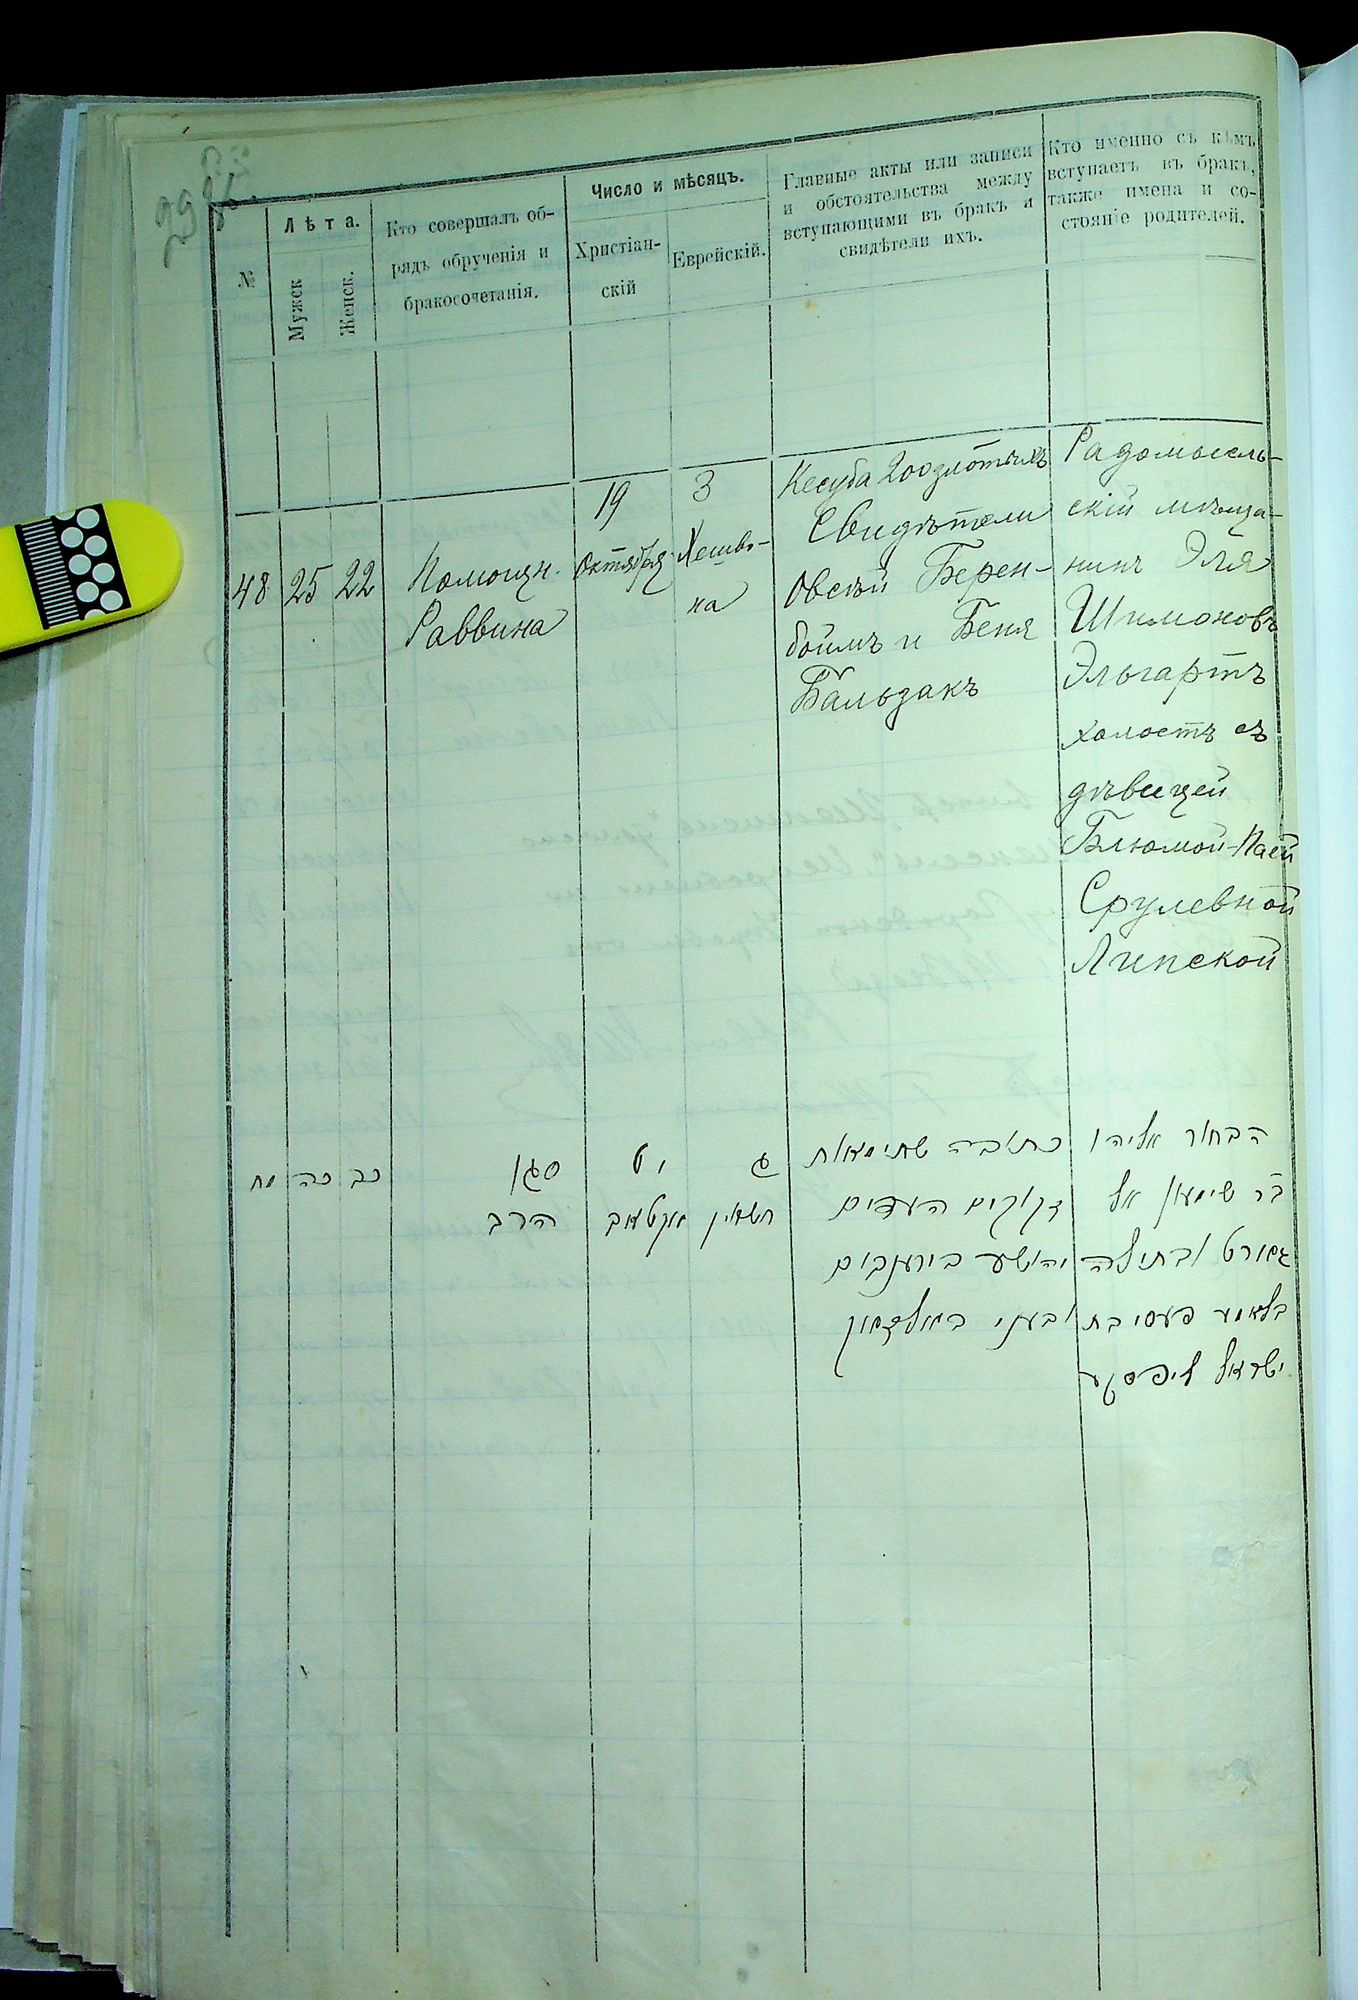 №
Лѣта.
Мужск
Женск.
Кто совершалъ об-
рядъ обрученія и
бракосочетанія.
Число и мѣсяцъ.
Христіан-
скій
Еврейскій.
Главные акты или записи
и обстоятельства между
вступающими въ бракъ и
свидѣтели ихъ.
Кто именно съ кѣмъ
вступаетъ въ бракъ,
также имена и со-
стояніе родителей.
48
25
22
Помощн.
Раввина
19
Октября
3
Хешво-
на
Кесуба 200 злотыхъ
Свидѣтели
Овсѣй Берен-
боймъ и Беня
Бальзакъ
Радомысль-
скій мѣща-
нинъ Эля
Шимоновъ
Эльгартъ
холостъ съ
дѣвицей
Блюмой-Пасей
Срулевной
Липской
מח
כה
כב
סגן
הרב
יט
אקטאב
ג
חשוון
כתובה שתי מאות
זקוקים העדים
יהושע בירענבוים
ובעני באלזאק
הבחור אליהו
בר שימעון אל
גארט ובתולה
בלומע פעסי בת
ישראל ליפסקע